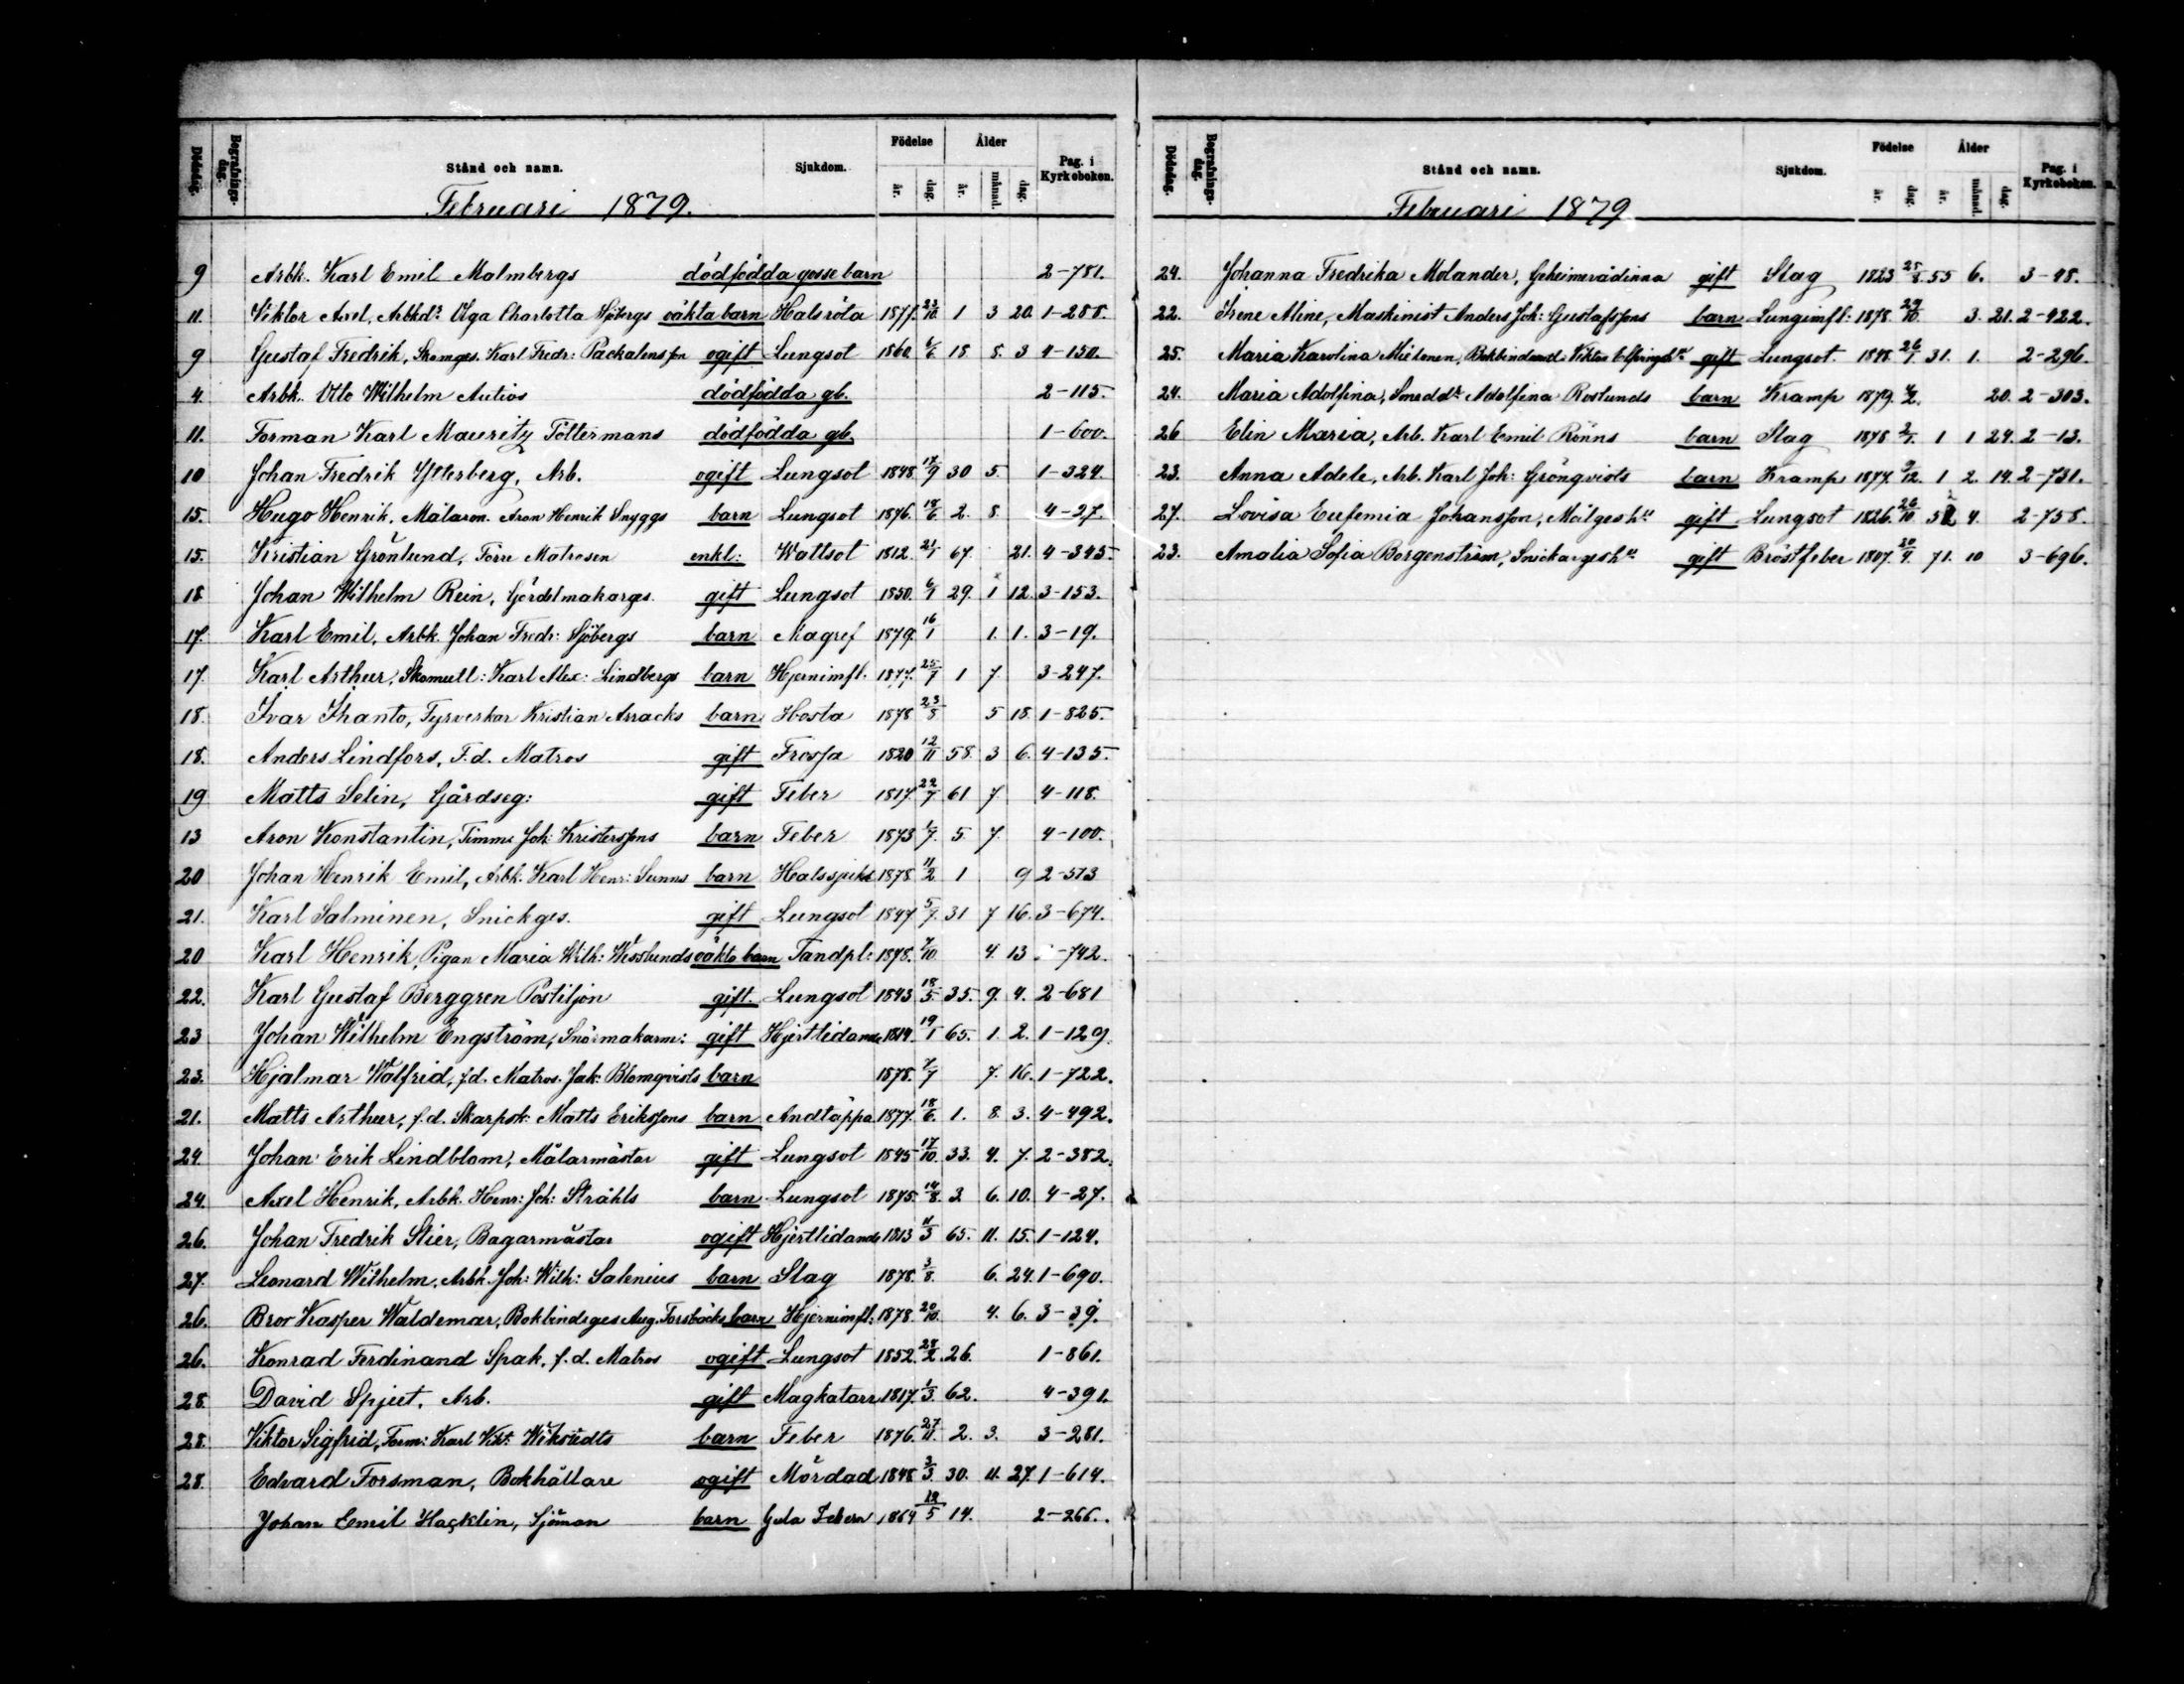 Dödsdag. Begrafnings-dag. Stånd och namn. Sjukdom. Födelse år. dag. Ålder år. månad. dag. Pag. i Kyrkoboken.
Februari 1879.
9 Arbk. Karl Emil Malmbergs dödfödda gosse barn 2-781.
11. Viktor Axel, Arbkdr Olga Charlotta Sjöbergs oäkta barn Halsröta 1877. 23/10 1 3 20. 1-288.
9 Gustaf Fredrik, Skomges. Karl Fredr: Packalensson ogift Lungsot 1860. 6/6 18 8. 3 4-150.
4. Arbk. Otto Wilhelm Autios dödfödda gb. 2-115.
11. Forman Karl Mauritz Töttermans dödfödda gb. 1-600.
10 Johan Fredrik Ytterberg, Arb. ogift Lungsot 1848. 17/9 30 5. 1-324.
15. Hugo Henrik, Målaren Aron Henrik Snyggs barn Lungsot 1876. 18/6 2. 8. 4-27.
15. Kristian Grönlund, Förre Matrosen enkl: Wattsot 1812. 21/1 67. 21. 4-345.
18 Johan Wilhelm Rein, Gördelmakarges. gift Lungsot 1850. 6/1 29. 1 12. 3-153.
17. Karl Emil, Arbk. Johan Fredr: Sjöbergs barn Magref 1879. 16/1 1. 1. 3-19.
17. Karl Arthur, Skomutl: Karl Alex: Lindbergs barn Hjernimfl. 1877. 25/7 1 7 3-247.
18. Ivar Ihanto, Fyrverkar Kristian Arracks barn Hosta 1878 23/8 5 18. 1-825.
18. Anders Lindfors, F.d. Matros gift Frossa 1820 12/11 58. 3 6. 4-135.
19 Matts Selin, Gårdseg: gift Feber 1817. 22/7 61 7 4-118.
13 Aron Konstantin, Timme Joh: Kristerssons barn Feber 1873 1/7. 5. 7. 4-100.
20 Johan Henrik Emil, Arbk. Karl Henr: Sunns barn Halssjuka 1878. 11/2 1 9 2-573
21. Karl Salminen, Snickges. gift Lungsot 1847 5/7. 31 7 16. 3-674.
20 Karl Henrik, Pigan Maria Wilh: Wesslunds oäkta barn Tandpl: 1878. 7/10 4. 13 -742.
22. Karl Gustaf Berggren Postiljon gift. Lungsot 1843 18/5 35. 9. 4. 2-681
23 Johan Wilhelm Engström, Snörmakarm: gift Hjertlidande 1814. 19/1 65. 1. 2. 1-129.
23. Hjalmar Walfrid, f.d. Matros. Jak: Blomqvists barn 1878. 7/7 7. 16. 1-722.
21. Matts Arthur, f.d. Skarpsk: Matts Erikssons barn Andtäppa 1877. 18/6. 1. 8. 3. 4-492.
24. Johan Erik Lindblom, Målarmästar gift Lungsot 1845 17/10. 33. 4. 7. 2-382.
24. Axel Henrik, Arbk. Henr: Joh: Stråhls barn Lungsot 1875. 14/8. 3. 6. 10. 4-27.
26. Johan Fredrik Stier, Bagarmästar ogift Hjertlidande 1813 11/3 65. 11. 15. 1-124.
27. Leonard Wilhelm, Arbk. Joh: Wilh: Salenius barn Slag 1878. 3/8. 6. 24. 1-690.
26. Bror Kasper Waldemar, Bokbindsges Aug. Forsbäcks barn Hjernimfl: 1878. 20/10. 4. 6. 3-39.
26. Konrad Ferdinand Spak, f.d. Matros ogift Lungsot 1852. 28/2. 26. 1-861.
28. David Spjut, Arb. gift Magkatarr 1817. 1/3. 62. 4-391.
28. Viktor Sigfrid, Form: Karl Vikt: Wikstedts barn Feber 1876. 27/11. 2. 3. 3-281.
28. Edvard Forsman, Bokhållare ogift Mördad 1848 3/3. 30. 11. 27. 1-614.
Johan Emil Hacklin, Sjöman barn Gula Febern 1864 12/5 14. 2-266.
Dödsdag. Begrafnings-dag. Stånd och namn. Sjukdom. Födelse år. dag. Ålder år. månad. dag. Pag. i Kyrkoboken.
Februari 1879
24. Johanna Fredrika Molander, Geheimerådinna gift Slag 1823 25/8. 55 6. 3-48.
22. Irene Aline, Maskinist Anders Joh: Gustafssons barn Lungimfl: 1878. 29/10. 3. 21. 2-422.
25. Maria Karolina Mietonen, gift Lungsot. 1848. 26/1. 31. 1. 2-296.
24. Maria Adolfina, Smeddr Adolfina Roslunds barn Kramp 1879. 4/2. 20. 2-303.
26 Elin Maria, Arb. Karl Emil Rönns barn Slag 1878 2/1. 1 1 24. 2-13.
23. Anna Adele, Arb. Karl Joh: Grönqvists barn Kramp 1877. 9/12. 1 2. 14. 2-731.
27. Lovisa Eufemia Johansson, Målgesh:u gift Lungsot 1826. 26/10 52 4. 2-758.
23. Amalia Sofia Borgenström, Snickargesh:u gift Bröstfeber 1807. 20/4. 71. 10 3-696.